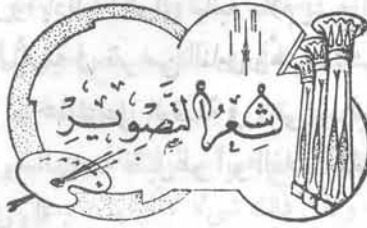 شِعْرُ التَّصْوِيرِ